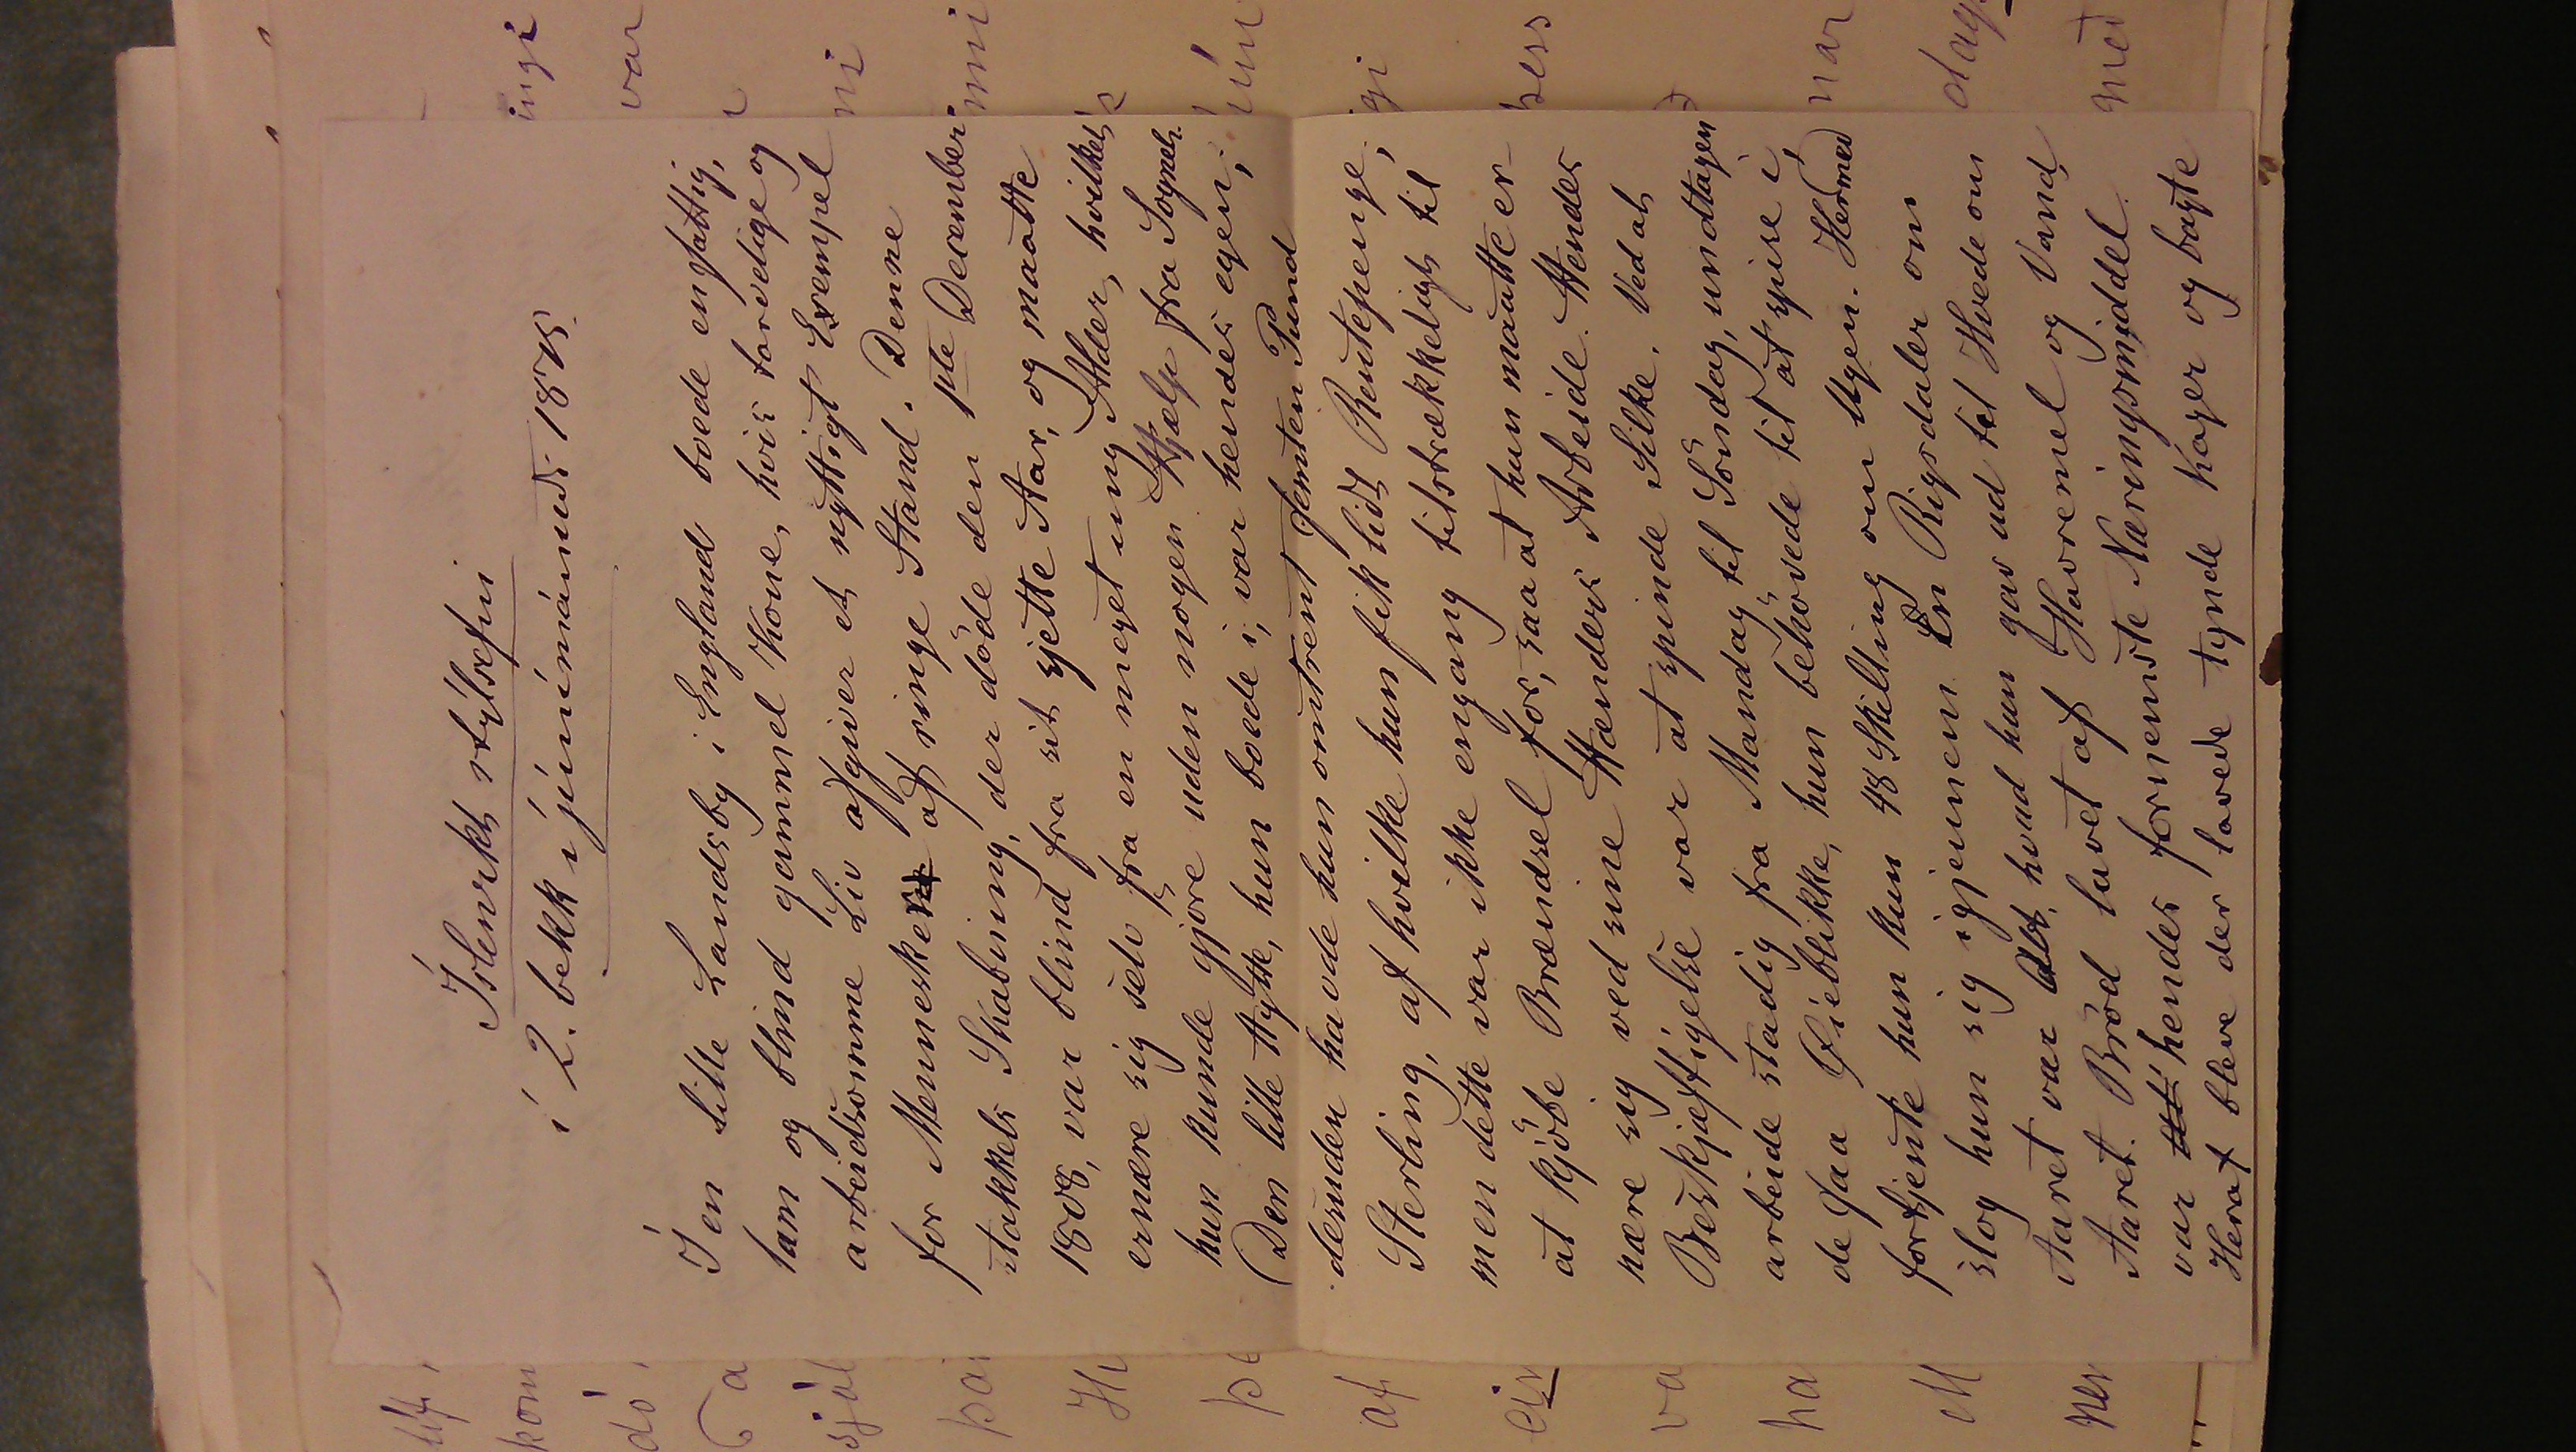 Íslenzkt stýlsefni
í 2. bekk í júnímánuði 1875.
I en lille Landsby i England boede en fattig,
lam og blind gammel Kone, hvis tarvelige og
arbeidsomme Liv afgiver et nyttigt Exempel
for Mennesker af ringe Stand. Denne
stakkels Skabning, der döde den 1ste December
1808, var blind fra sit sjette Aar, og maatte
ernære sig selv fra en meget ung Alder, hvilket
hun kunde gjöre uden nogen Hjælp fra Sognet.
Den lille Hytte, hun boede i, var hendes egen;
desuden havde hun omtrent femten Pund
Sterling, af hvilke hun fik lidt Rentepenge,
men dette var ikke engang tilstrækkeligt til
at kjöbe Brændsel for, saa at hun maatte er-
nære sig ved sine Hænders Arbeide. Hendes
Beskjæftigelse var at spinde Silke. Ved at
arbeide stadig fra Mandag til Söndag, undtagen
de faa Öieblikke, hun behövede til at spise i,
fortjente hun kun 48 Skilling om Ugen. Hermed
slog hun sig igjennem. En Rigsdaler om
Aaret var Alt, hvad hun gav ud til Hvede om
Aaret. Bröd lavet af Havremel og Vand
var hendes fornemste Næringsmiddel.
Heraf blev der lavede tynde Kager og bagte